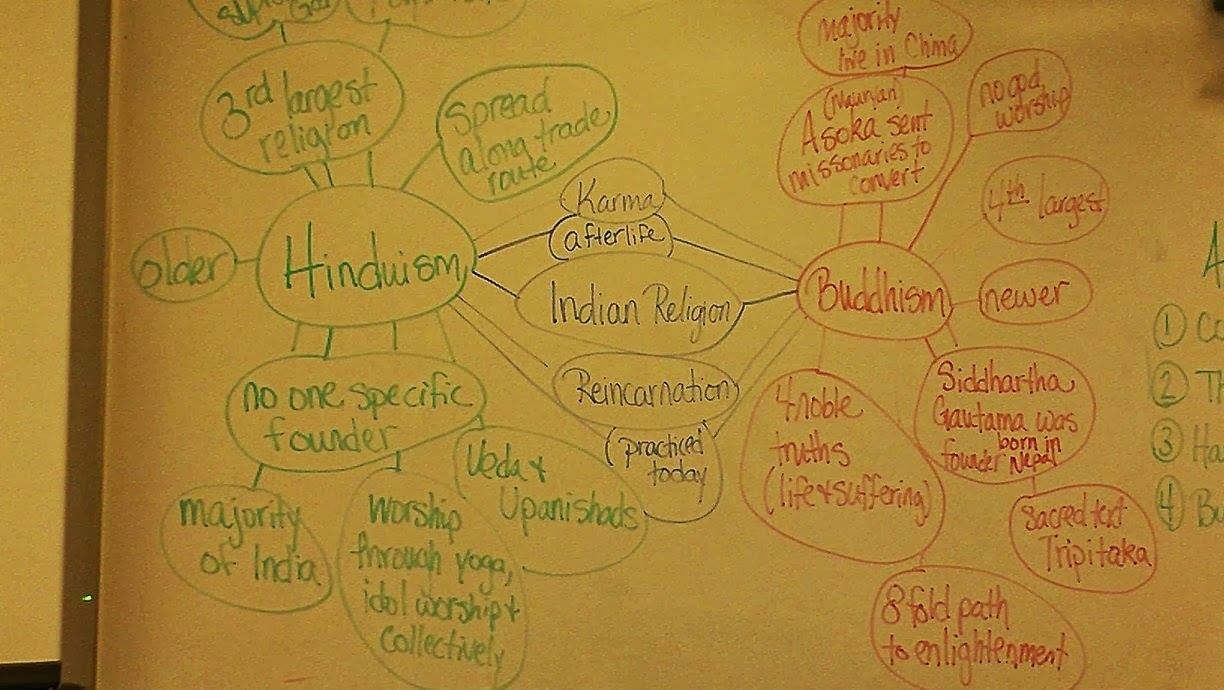 3rd largest
religion
Spread
along trade
route
older
Hinduism
no one specific
founder
majority
of India
worship
through yoga,
idol worship +
collectively
Veda +
Upanishads
Karma
afterlife
Indian Religion
Reincarnation
(practiced
today
majority
live in China
(Mauryan)
Asoka sent
missonaries to
convert
no god
worship
4th largest
Buddhism
newer
Siddhartha
Gautama was
founder born in
Nepal
4 noble
truths
(life + suffering)
sacred text
Tripitaka
8 fold path
to enlightenment
1
2
3
4